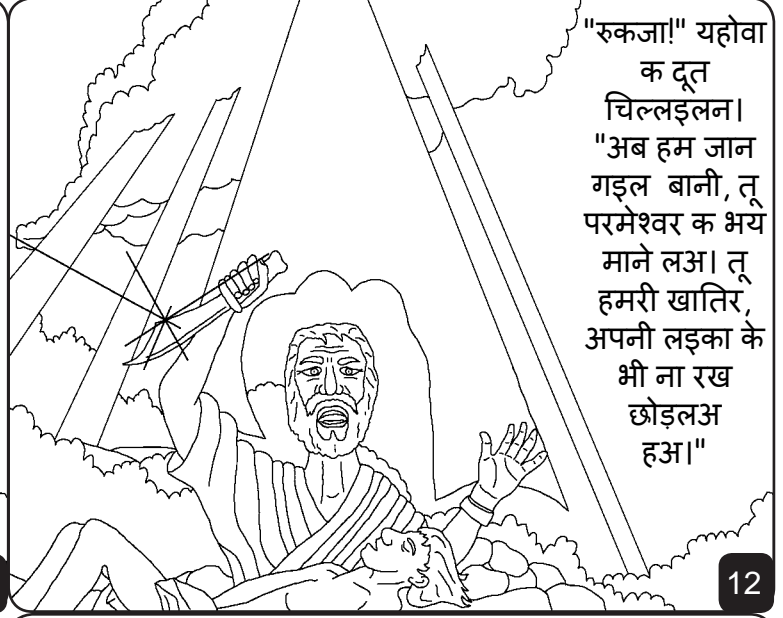 "रुकजा!" यहोवा
क दूत
चिल्लइलन।
"अब हम जान
गइल  बानी, तू
परमेश्वर क भय
माने लअ। तू
हमरी खातिर,
अपनी लइका के
भी ना रख
छोड़लअ
हअ।"
12